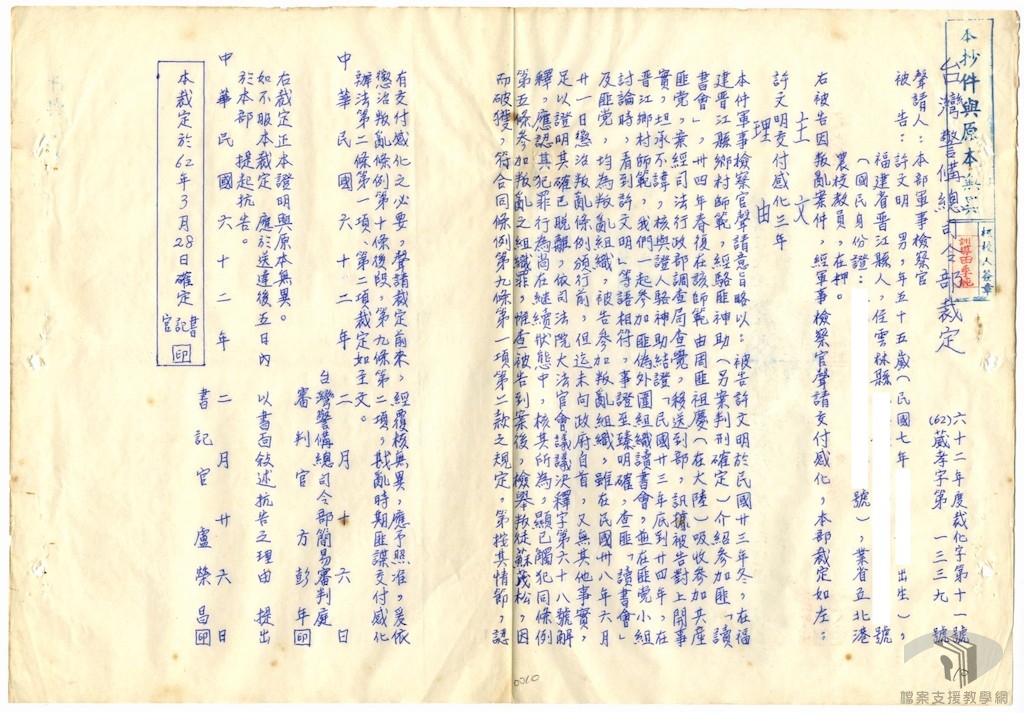 本抄件與原本無異
台灣警備總司令部裁定
六十二年度裁化字第十一號
(62)葳孝字第一三三九號
聲請人:本部軍事檢察官
被告:許文明 男,年五十五歲(民國七年 出生),
福建省晉江縣人,住雲林縣 號
(國民身份證: 號),業省立北港
農校教員,在押。
右被告因叛亂案件,經軍事檢察官聲請交付感化,本部裁定如左:
主文
許文明交付感化三年
理由
本件軍事檢察官聲請意旨略以:被告許文明於民國卅三年冬,在福
建晉江縣鄉村師範,經駱匪神助(另案判刑確定)介紹參加匪「讀
書會」,卅四年春復在該師範由周匪祖慶(在大陸)吸收參加共產
匪党,案經司法行政部調查局查覺,移送到部,訊據被告對上開事
實,坦承不諱,核與證人駱神助結證「民國卅三年底到卅四年,在
晉江鄉村師範,我們一起參加匪偽外圍組織讀書會,並在匪党小組
討論時,看到許文明」等語相符,事證至臻明確,查匪「讀書會」
及匪党,均為叛亂組織,被告參加叛亂組織,雖在民國卅八年六月
廿一日懲治叛亂條例頒行前,但迄未向政府自首,又無其他事實,
足以證明其確已脫離,依司法院大法官會議議決釋字第六十八號解
釋,應認其犯罪行為尚在繼續狀態中,核其所為,顯已觸犯同條例
第五條參加叛亂之組織罪,惟查被告到案後,檢舉叛徒蘇茂松,因
而破獲,符合同條例第九條第一項第二款之規定。第按其情節,認
有交付感化之必要,聲請裁定前來,經覆核無異,應予照准,爰依
懲治叛亂條例第十條後段,第九條第二項,戡亂時期匪諜交付感化
辦法第二條第一項、第二項裁定如主文。
中華民國六十二年二月十六日
台灣警備總司令部簡易審判庭
審判官 方彭年 印
右裁定正本證明與原本無異。
如不服本裁定,應於送達後五日內,以書面敘述抗告之理由,提出
於本部,提起抗告。
書記官 盧榮昌 印
中華民國六十二年二月廿六日
本裁定於62年3月28日確定
書記官 印
0010
檔案支援教學網